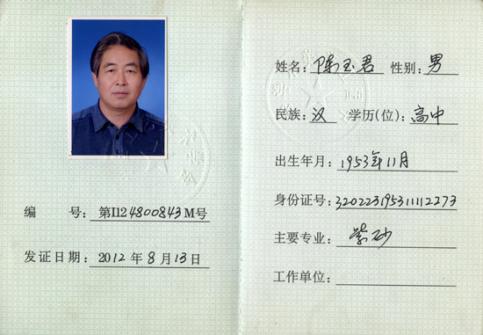 编 号: 第I124800843M号
发证日期: 2012 年 8 月 13 日
姓名: 陈玉君 性别: 男
民族: 汉 学历(位): 高中
出生年月: 1953年11月
身份证号: 320223195311112273
主要专业: 紫砂
工作单位: